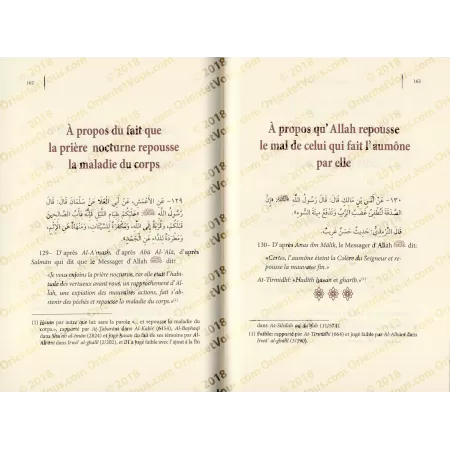 162
À propos du fait que
la prière nocturne repousse
la maladie du corps
١٢٩- عَنِ الأَعْمَشِ، عَنْ أَبِي العَلَا عَنْ سَلْمَانَ قَالَ: قَالَ
رَسُولُ اللَّهِ ﷺ: «عَلَيْكُمْ بِقِيَامِ اللَّيْلِ فَإِنَّهُ دَأْبُ الصَّالِحِينَ
قَبْلَكُمْ، وَقُرْبَةٌ إِلَى اللَّهِ، وَمَكْفَرَةٌ لِلسَّيِّئَاتِ، وَمَنْهَاةٌ عَنِ الإِثْمِ،
وَمَطْرَدَةٌ لِلدَّاءِ عَنِ الجَسَدِ».
129- D'après Al-A'mash, d'après Abu Al-'Ala, d'après
Salmân qui dit que le Messager d'Allah dit:
«Je vous enjoins la prière nocturne, car elle était l'habi-
tude des vertueux avant vous, un rapprochement d'Al-
lah, une expiation des mauvaises actions, fait s'abst-
enir des péchés et repousse la maladie du corps.»
(1) par autre que lui sans la parole «... et repousse la maladie du
corps.», rapporté par At-Tabarâni dans Al-Kabîr (6454), Al-Bayhaqi
dans (2824) et jugé par Al-
Albâni dans Irwâ' al-ghalîl (2/202), et il l'a jugé faible avec l'ajout à la fin
163
À propos qu'Allah repousse
le mal de celui qui fait l'aumône
par elle
١٣٠- عَنْ أَنَسِ بْنِ مَالِكٍ قَالَ: قَالَ رَسُولُ اللَّهِ ﷺ: «إِنَّ
الصَّدَقَةَ لَتُطْفِئُ غَضَبَ الرَّبِّ وَتَدْفَعُ مِيتَةَ السُّوءِ».
قَالَ التِّرْمِذِيُّ: حَدِيثٌ حَسَنٌ غَرِيبٌ.
130- D'après Anas ibn Mâlik, le Messager d'Allah dit:
«Certes, l'aumône éteint la Colère du Seigneur et re-
pousse la mauvaise fin.»
At-Tirmidhî: «Hadîth hassan et gharîb.»(1)
dans
(1) Faible: rapporté par At-Tirmidhî (664) et jugé faible par Al-Albâni dans
Irwâ' al-ghalîl (3/390).
© 2018 OrientetVous.com